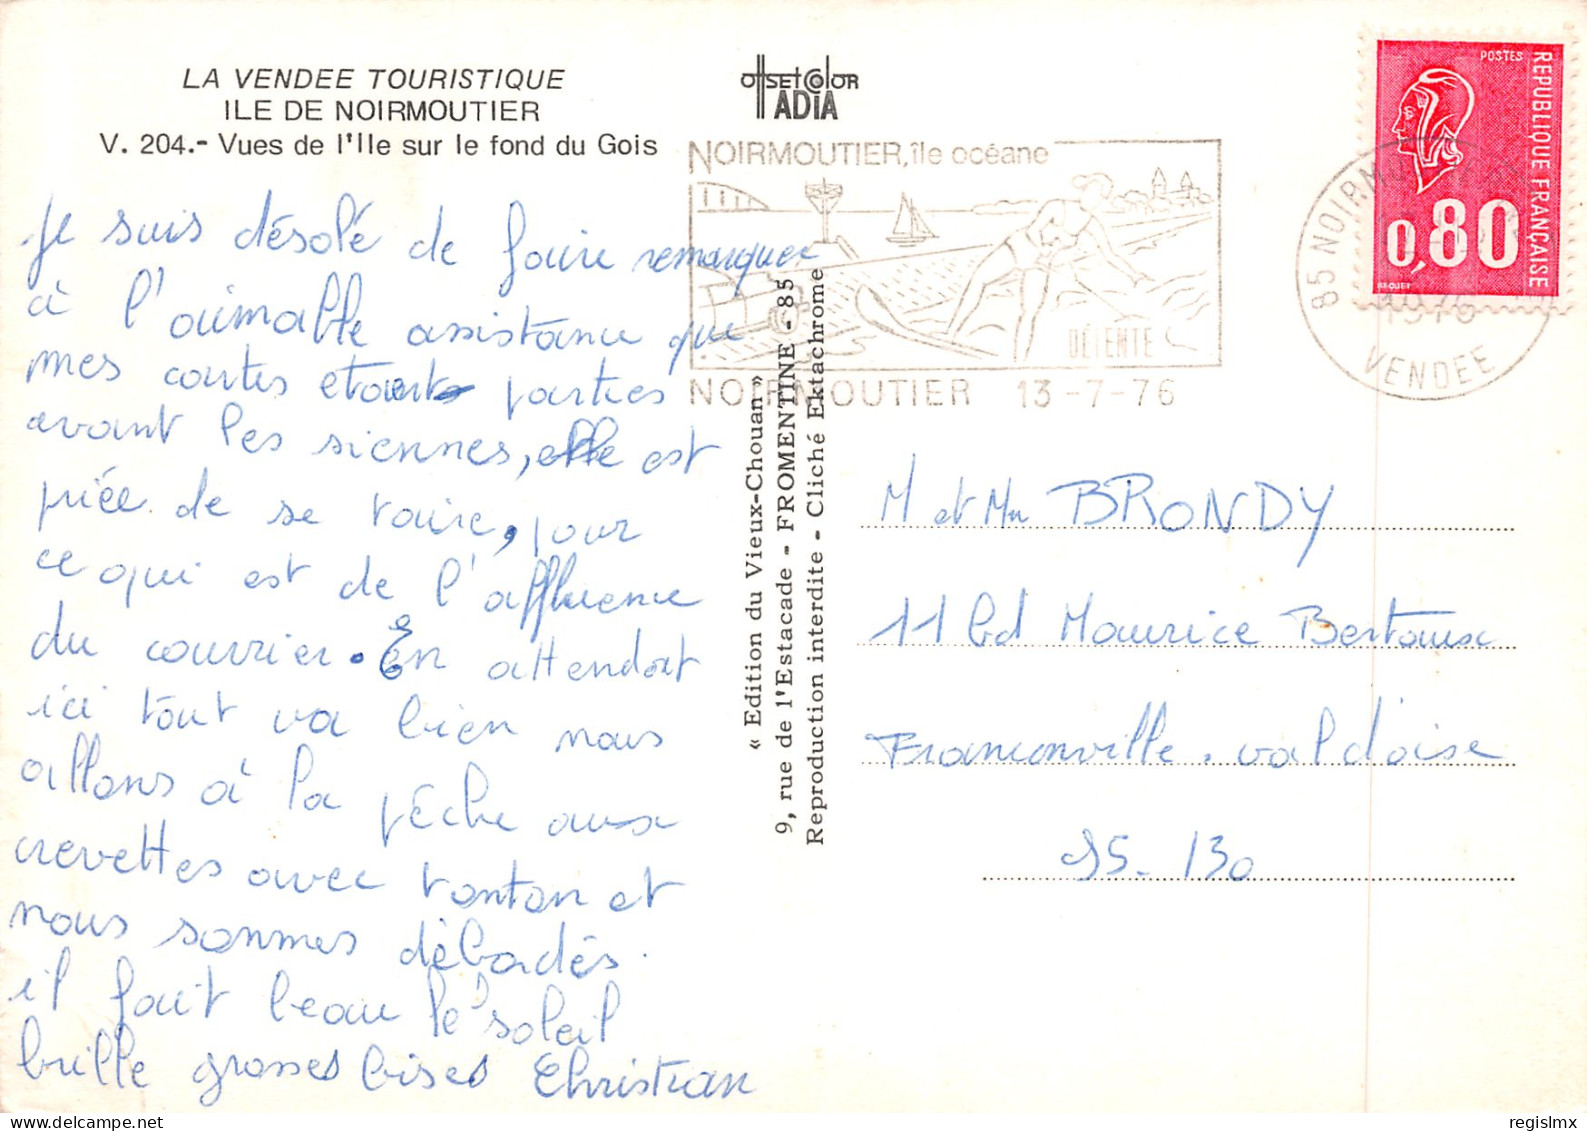 LA VENDEE TOURISTIQUE
ILE DE NOIRMOUTIER
V. 204.- Vues de l'Ile sur le fond du Gois
Je suis désolé de faire remarquer
à l'aimable assistance que
mes cartes étaient parties
avant les siennes, elle est
priée de se taire, pour
ce qui est de l'affluence
du courrier. En attendant
ici tout va bien nous
allons à la pêche aux
crevettes avec tonton et
nous sommes débadés.
il fait beau le soleil
brille grosses bises Christian
OFFSET COLOR
ADIA
NOIRMOUTIER, île océane
DÉTENTE
NOIRMOUTIER 13-7-76
« Edition du Vieux-Chouan »
9, rue de l'Estacade - FROMENTINE - 85
Reproduction interdite - Cliché Ektachrome
POSTES
REPUBLIQUE FRANÇAISE
0,80
BEQUET
85 NOIRMOUTIER
1976
VENDEE
M et Mm BRONDY
11 bd Maurice Berteaux
Franconville. val d'oise
95-130
regislmx